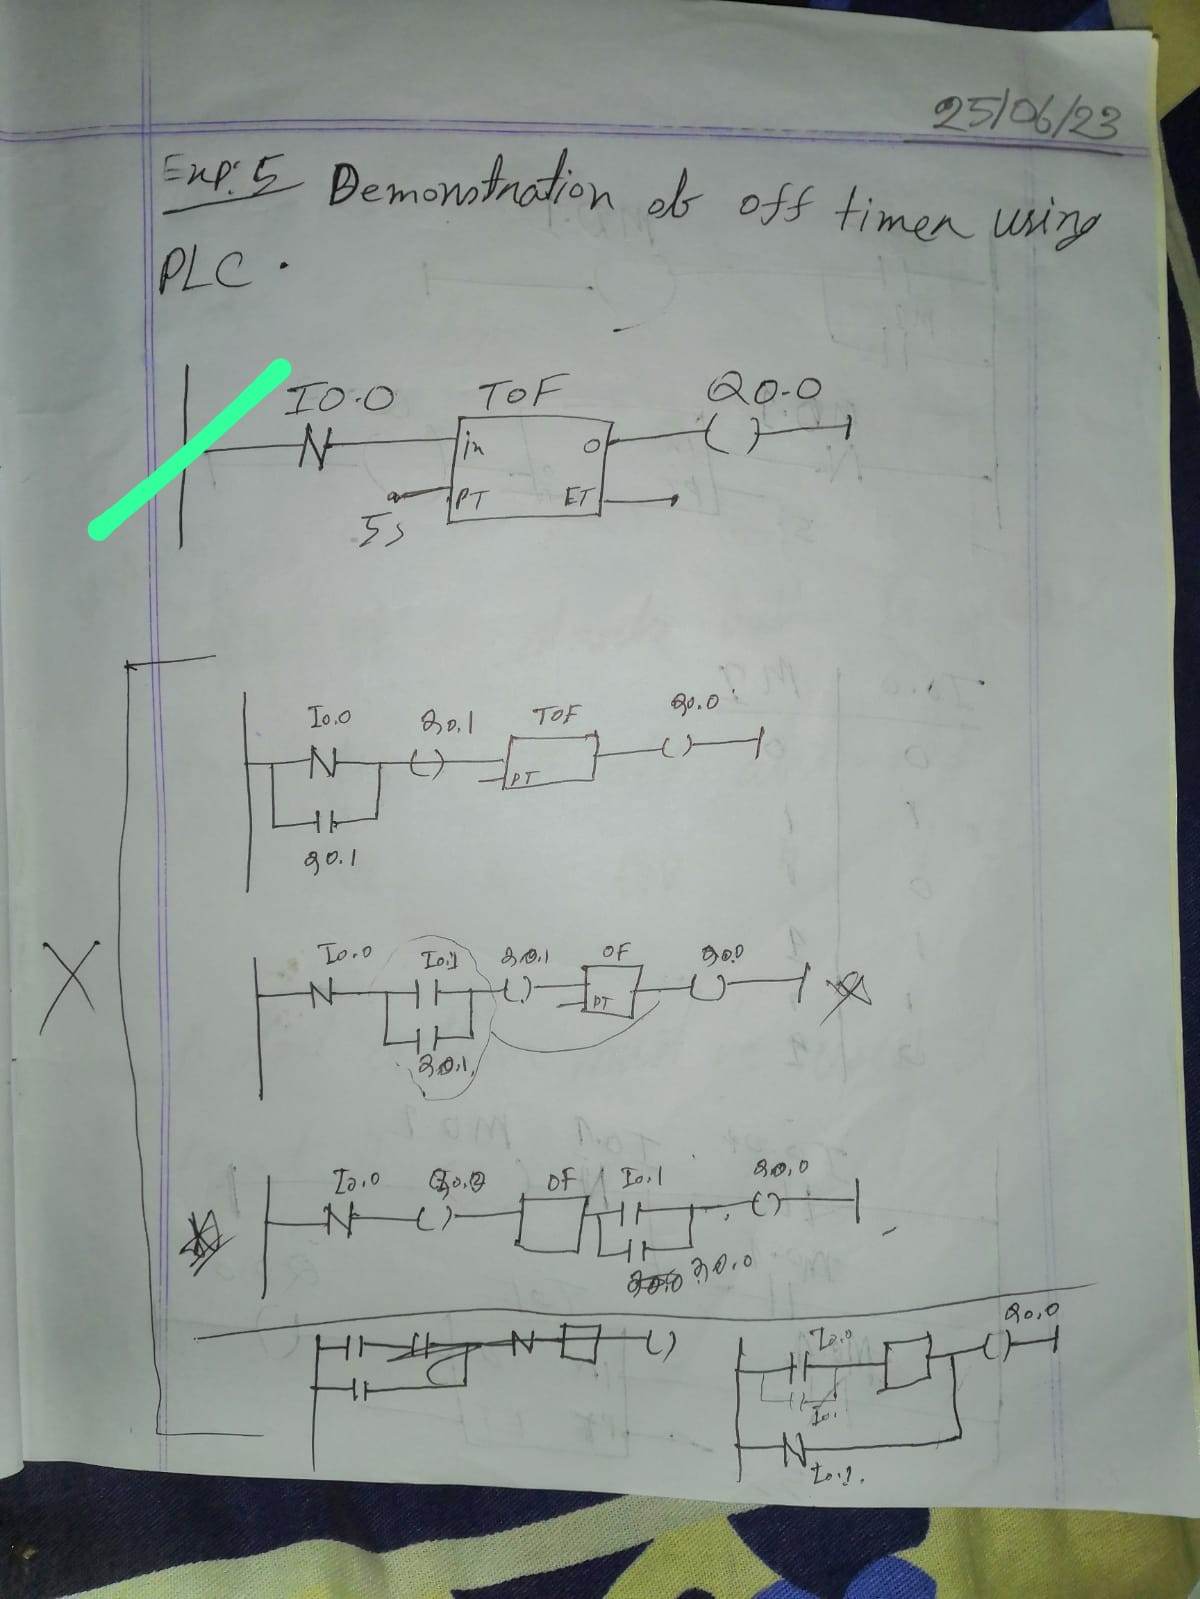 25/06/23
Exp: 5 Demonstration of off timer using
PLC.
I0.0 TOF Q0.0
in O
PT ET
5s
I0.0 Q0.1 TOF Q0.0
PT
Q0.1
I0.0 I0.1 Q0.1 OF Q0.0
PT
Q0.1
X
I0.0 Q0.0 OF I0.1 Q0.0
Q0.0
Q0.0
I0.0
I0.1